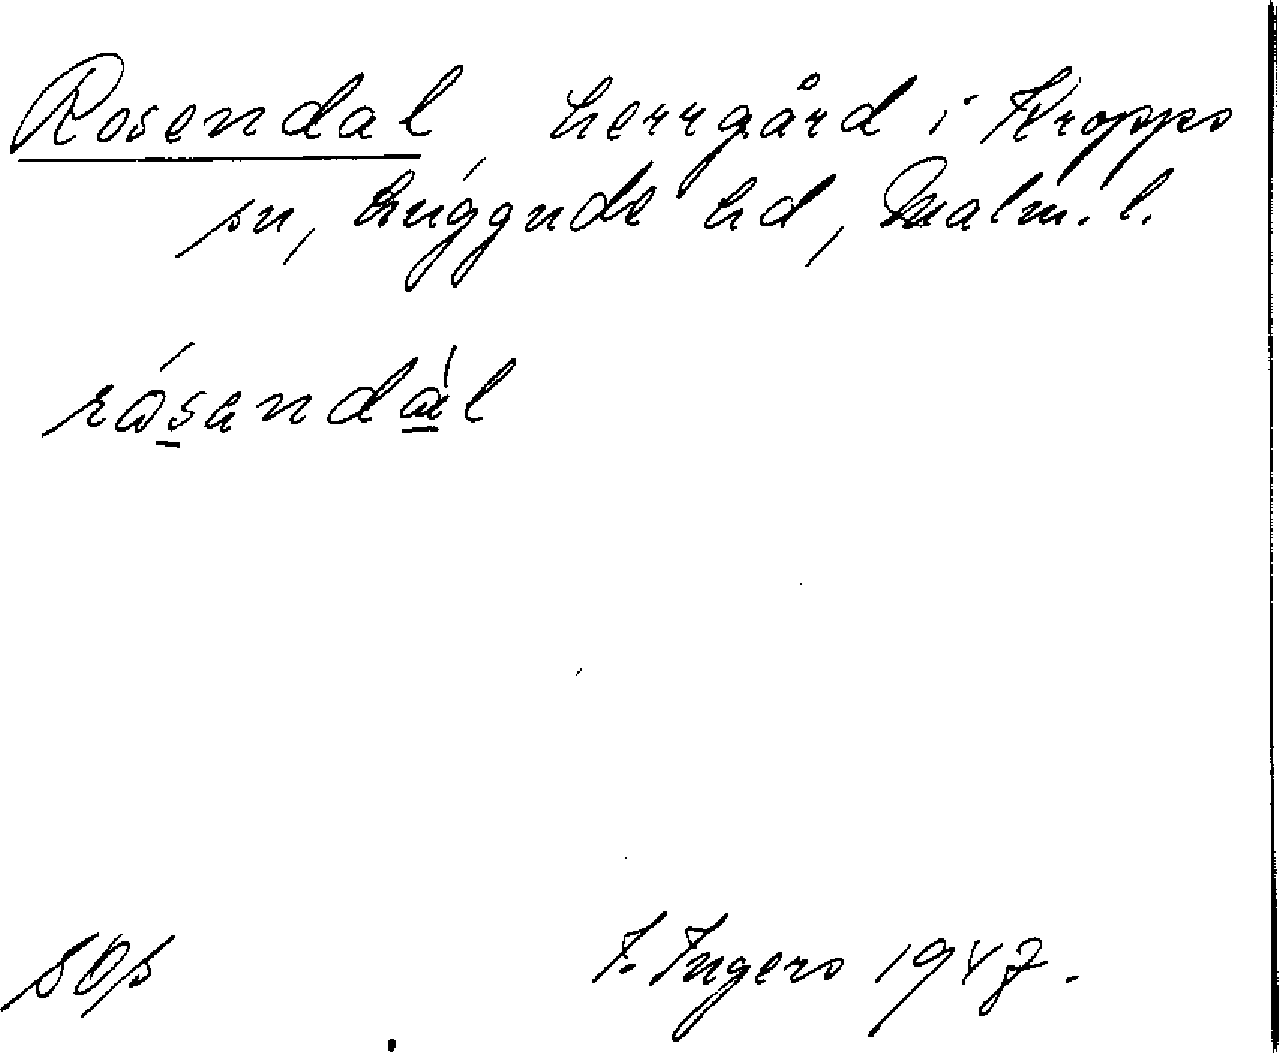 Rosendal, herrgård i Kropps
sn, Luggude hd, Malm. l.
rósandál
sOs
I. Ingers 1947.